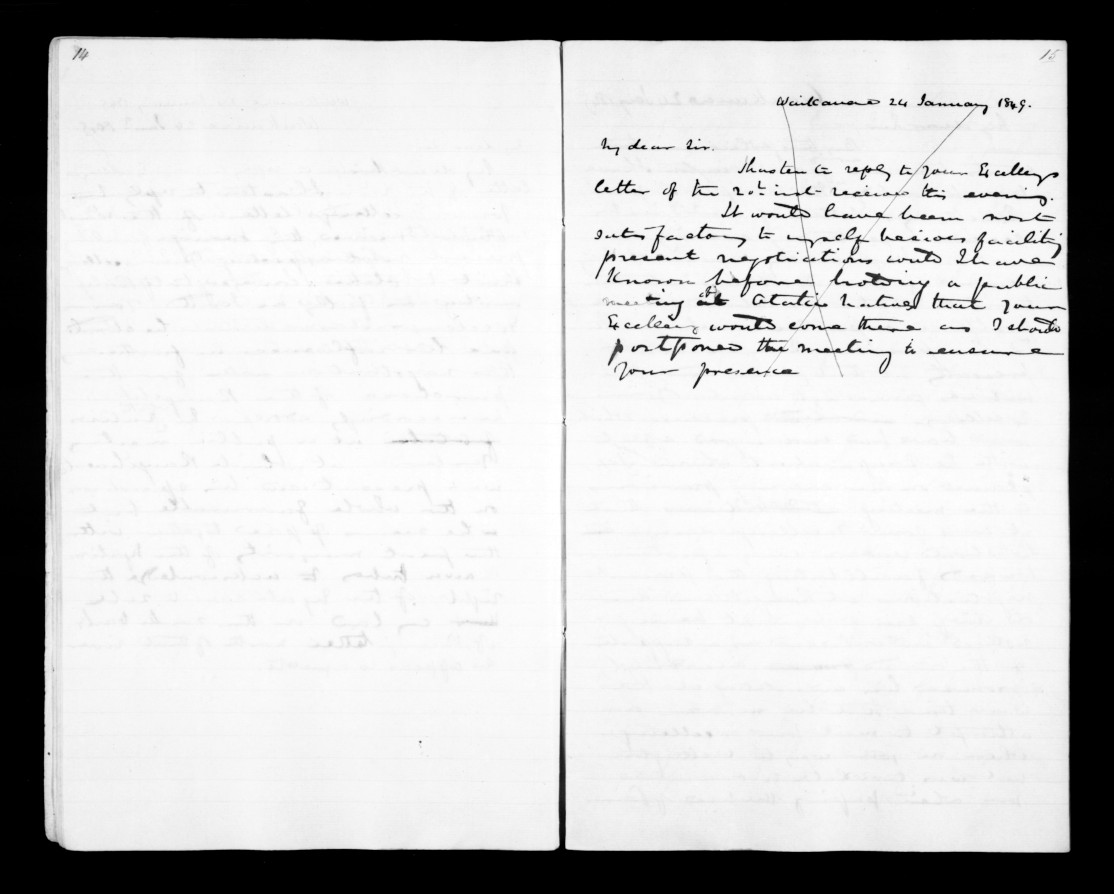 14
15
Waikanae 24 January 1849.
My dear Sir.
I hasten to reply to your Excellencys
letter of the inst received this evening.
It would have been most
satisfactory to myself besides facilitating
present negotiations could I have
known before holding a public
meeting of natives that your
Excellency would come there as I should
postponed the meeting to ensure
your presence